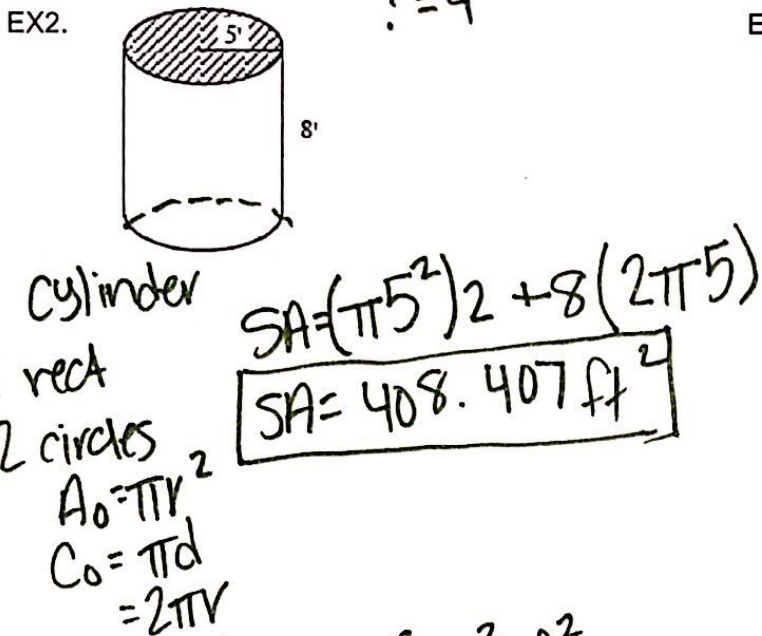 EX2.
5'
8'
cylinder
rect
2 circles
A₀=πr²
C₀=πd
=2πr
SA=(π5²)2+8(2π5)
SA=408.407 ft²